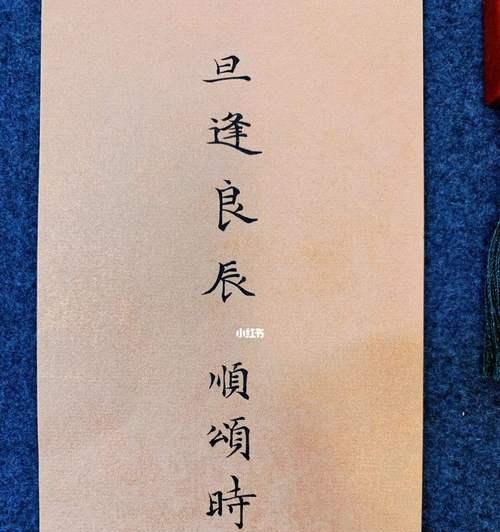 旦逢良辰 順頌時
小红书